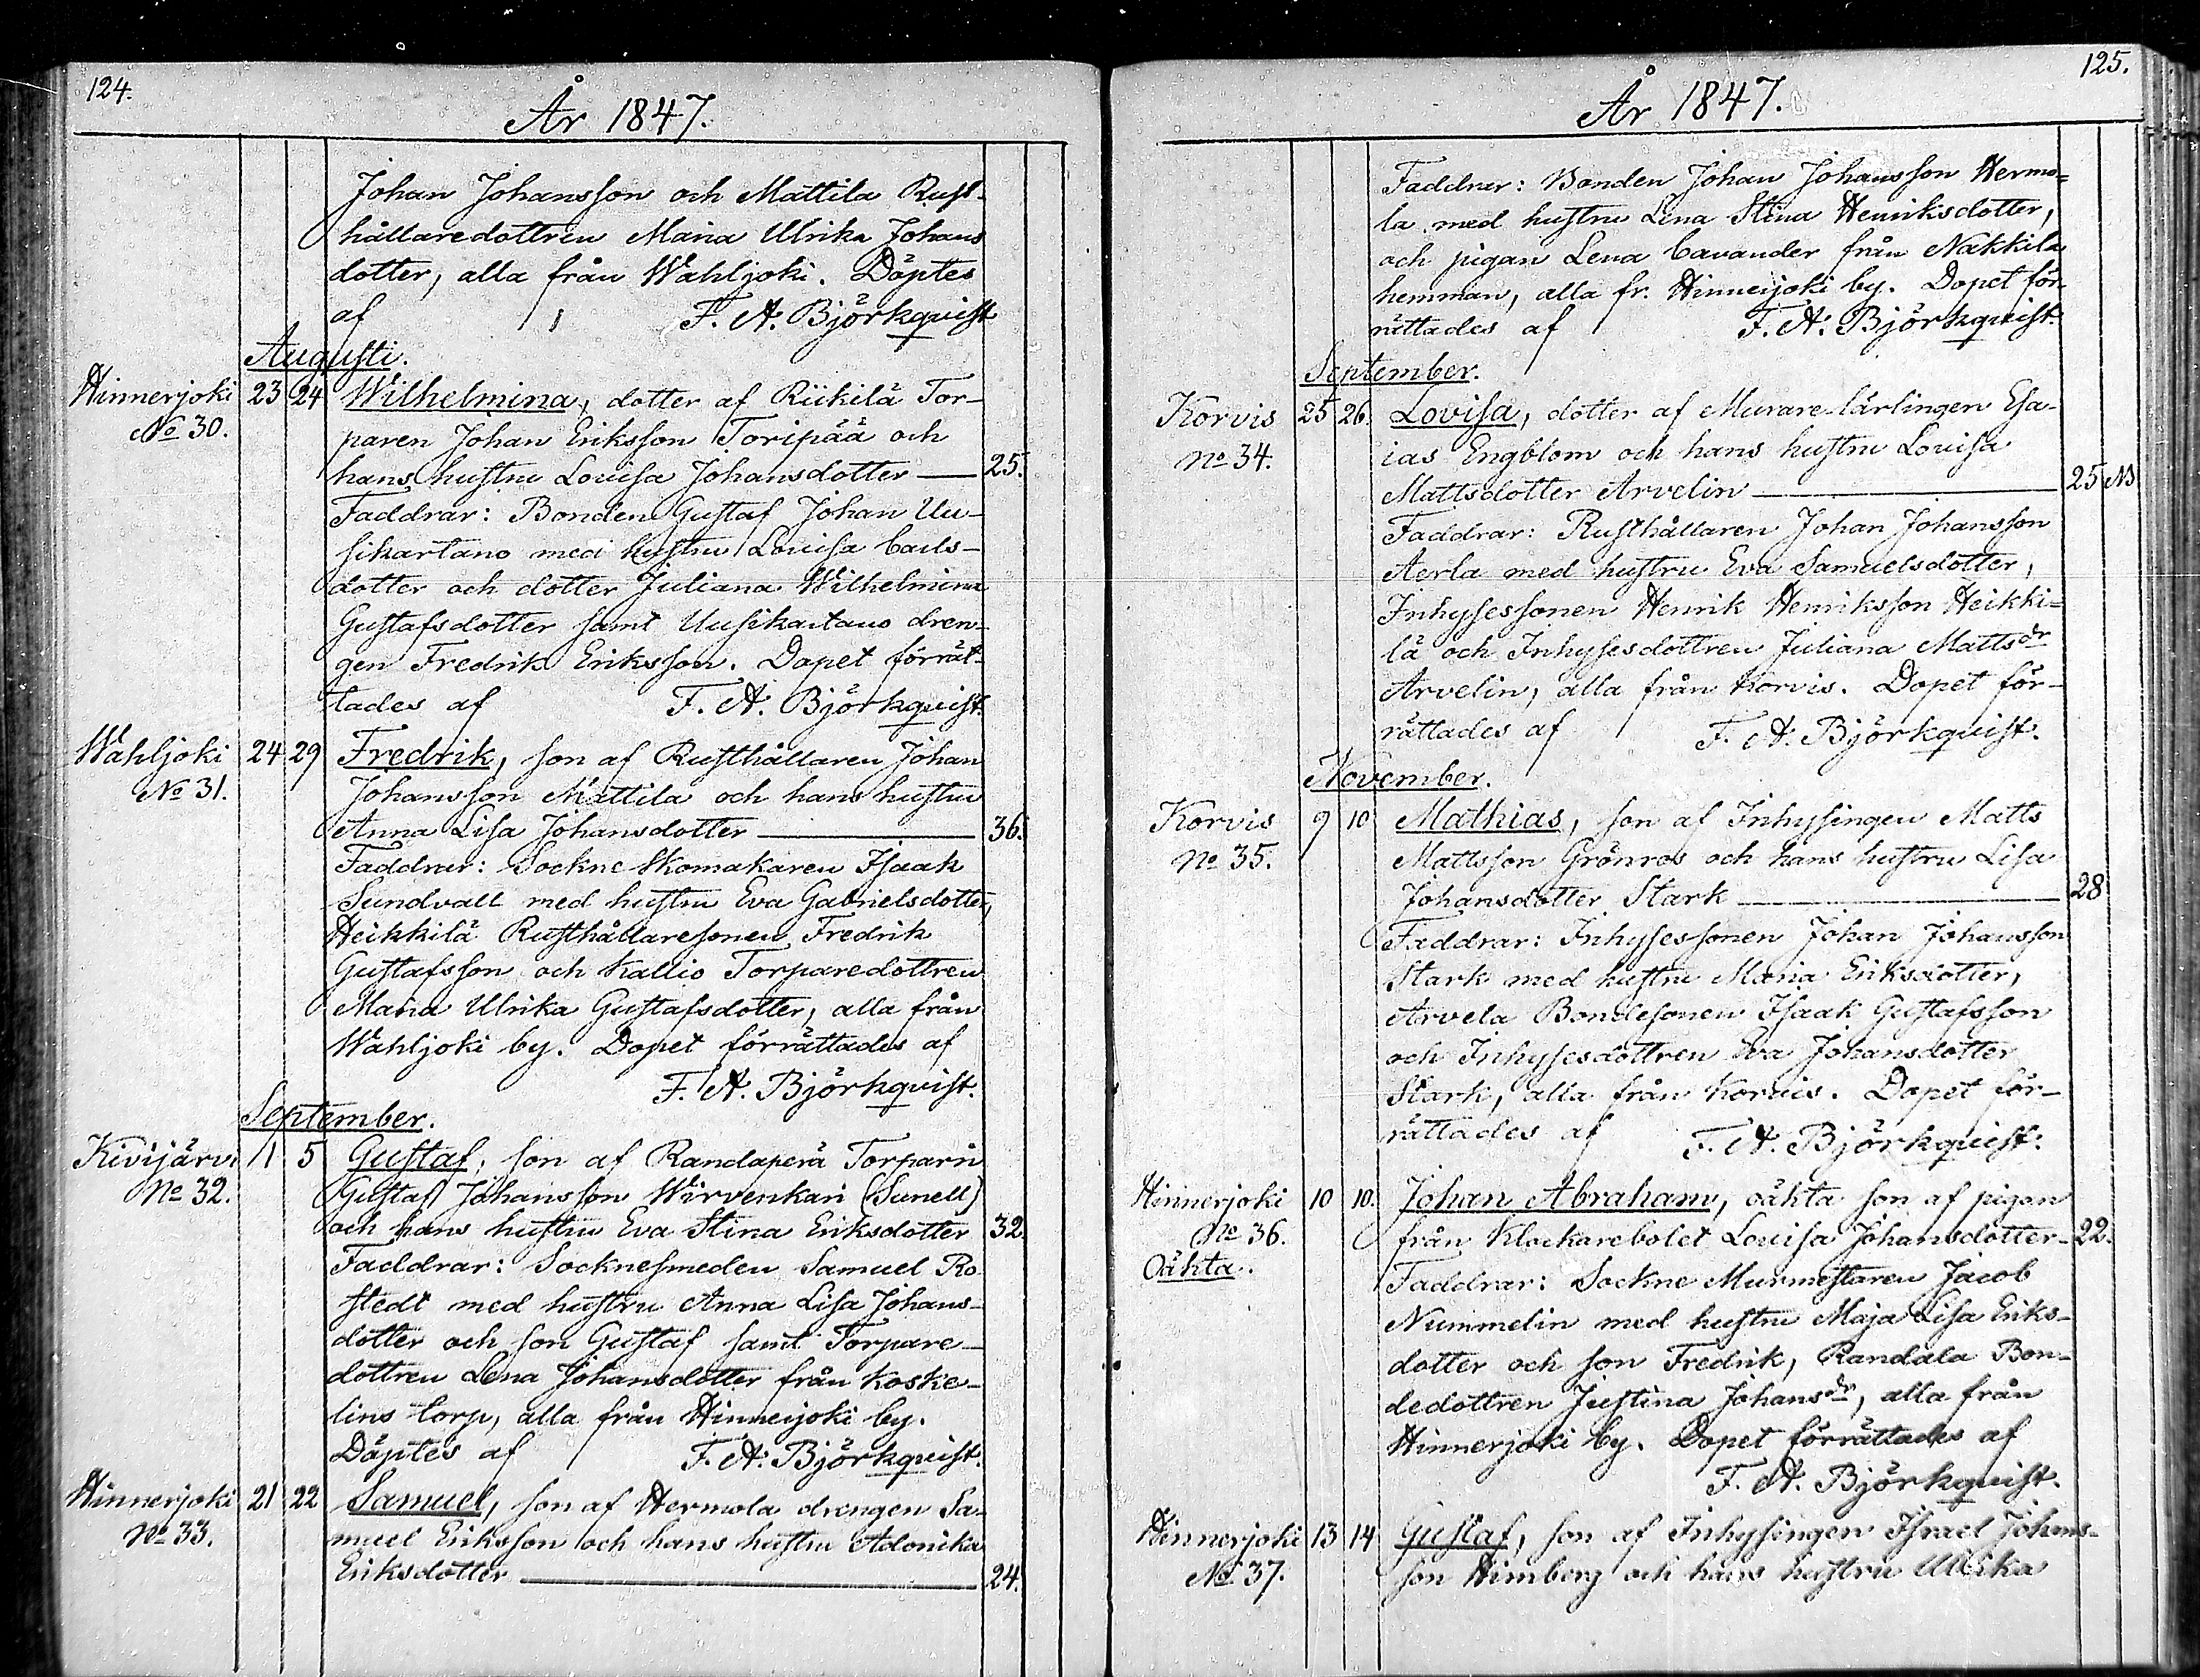 124.
År 1847.
Johan Johansson och Mattila Rust-
hållaredottren Maria Ulrika Johans
dotter, alla från Wahljoki. Döptes
af F. A. Björkqvist
Augusti.
Hinnerjoki 23 24 Wilhelmina, dotter af Riikilä Tor-
No 30. paren Johan Eriksson Toripää och
hans hustru Lovisa Johansdotter — 25.
Faddrar: Bonden Gustaf Johan Uu-
sikartano med hustru Lovisa Carls-
dotter och dotter Juliana Wilhelmina
Gustafsdotter samt Uusikartano dren-
gen Fredrik Eriksson. Dopet förrät-
tades af F. A. Björkqvist.
Wahljoki 24 29 Fredrik, son af Rusthållaren Johan
No 31. Johansson Mattila och hans hustru
Anna Lisa Johansdotter — 36.
Faddrar: Sockne Skomakaren Isaak
Sundvall med hustru Eva Gabrielsdotter,
Heikkilä Rusthållaresonen Fredrik
Gustafsson och Kallio Torparedottren
Maria Ulrika Gustafsdotter, alla från
Wahljoki by. Dopet förrättades af
F. A. Björkqvist.
September.
Kivijärvi 1 5 Gustaf, son af Randaperä Torparn
No 32. Gustaf Johansson Wirvenkari (Sunell)
och hans hustru Eva Stina Eriksdotter 32.
Faddrar: Socknesmeden Samuel Ro
stedt med hustru Anna Lisa Johans-
dotter och son Gustaf samt Torpare-
dottren Lena Johansdotter från Koske-
lins torp, alla från Hinnerjoki by.
Döptes af F. A. Björkqvist.
Hinnerjoki 21 22 Samuel, son af Hermola drengen Sa-
No 33. muel Eriksson och hans hustru Adonika
Eriksdotter — 24.
125.
År 1847.
Faddrar: Bonden Johan Johansson Hermo=
la med hustru Lena Stina Henriksdotter,
och pigan Lena Cavander från Nakkila
hemman, alla fr. Hinnerjoki by. Dopet för-
rättades af F. A. Björkqvist.
September.
Korvis 25 26. Lovisa, dotter af Murare-lärlingen Esa-
No 34. ias Engblom och hans hustru Lovisa
Mattsdotter Arvelin — 25
Faddrar: Rusthållaren Johan Johansson
Aerla med hustru Eva Samuelsdotter,
Inhysessonen Henrik Henriksson Heikki=
lä och Inhysesdottren Juliana Mattsdr
Arvelin, alla från Korvis. Dopet för-
rättades af F. A. Björkqvist.
November.
Korvis 9 10 Mathias, son af Inhysingen Matts
No 35. Mattsson Grönros och hans hustru Lisa
Johansdotter Stark — 28
Faddrar: Inhysessonen Johan Johansson
Stark med hustru Maria Eriksdotter,
Arvela Bondesonen Isaak Gustafsson
och Inhysesdottren Eva Johansdotter
Stark, alla från Korvis. Dopet för-
rättades af F. A. Björkqvist.
Hinnerjoki 10 10. Johan Abraham, oäkta son af pigan
No 36. från Klockarebolet Lovisa Johansdotter- 22.
Oäkta. Faddrar: Sockne Murmestaren Jacob
Nummelin med hustru Maja Lisa Eriks-
dotter och son Fredrik, Randala Bon-
dedottren Justina Johansdr, alla från
Hinnerjoki by. Dopet förrättades af
F. A. Björkqvist.
Hinnerjoki 13 14 Gustaf, son af Inhysingen Israel Johans-
No 37. son Himberg och hans hustru Ulrika